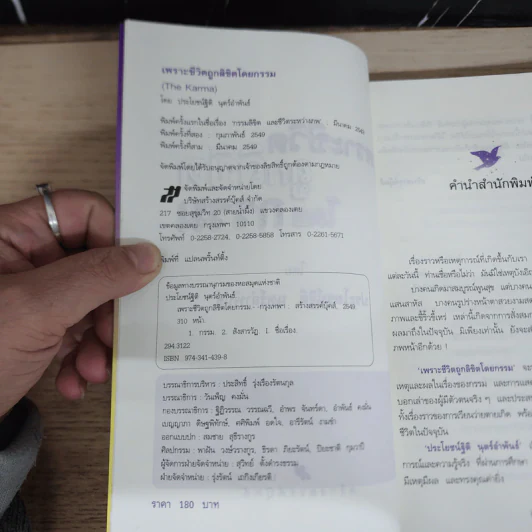 เพราะชีวิตถูกลิขิตโดยกรรม
(The Karma)
โดย ประโยชน์ฐิติ นุตร์อำพันธ์
พิมพ์ครั้งแรกในชื่อเรื่อง 'กรรมลิขิต และชีวิตระหว่างภพ' : มีนาคม 2549
พิมพ์ครั้งที่สอง : กุมภาพันธ์ 2549
พิมพ์ครั้งที่สาม : มีนาคม 2549
จัดพิมพ์โดยได้รับอนุญาตจากเจ้าของลิขสิทธิ์ถูกต้องตามกฎหมาย
จัดพิมพ์และจัดจำหน่ายโดย
บริษัทสร้างสรรค์บุ๊คส์ จำกัด
217 ซอยสุขุมวิท 20 (สายน้ำผึ้ง) แขวงคลองเตย
เขตคลองเตย กรุงเทพฯ 10110
โทรศัพท์ 0-2258-2724, 0-2258-5858 โทรสาร 0-2261-5671
พิมพ์ที่ แปลนพริ้นท์ติ้ง
ข้อมูลทางบรรณานุกรมของหอสมุดแห่งชาติ
ประโยชน์ฐิติ นุตร์อำพันธ์
เพราะชีวิตถูกลิขิตโดยกรรม.- กรุงเทพฯ : สร้างสรรค์บุ๊คส์, 2549.
310 หน้า.
1. กรรม. 2. สังสารวัฏ. I. ชื่อเรื่อง.
294.3122
ISBN 974-341-439-8
บรรณาธิการบริหาร : ประสิทธิ์ รุ่งเรืองรัตนกุล
บรรณาธิการ : วันเพ็ญ คงมั่น
กองบรรณาธิการ : ฐิฏิวรรณ วรรณผวี, อำพร จันทร์ดา, อำพันธ์ คงมั่น
เบญญาภา
ออกแบบปก : สมชาย สุธีรางกูร
ศิลปกรรม : พาฝัน วงษ์วรางกูร,
ผู้จัดการฝ่ายจัดจำหน่าย : สุวิทย์ ตั้งดำรงธรรม
ฝ่ายจัดจำหน่าย : รุ่งรัตน์ เมกิจเกียรติ
ราคา 180 บาท
คำนำสำนักพิมพ์
เรื่องราวหรือเหตุการณ์ที่เกิดขึ้นกับเรา
แต่ละวันนี้ ท่านเชื่อหรือไม่ว่า มันมิใช่เหตุบังเอิญ
บางคนเกิดมาสมบูรณ์พูนสุข แต่บางคน
แสนสาหัส บางคนรูปร่างหน้าตาสวยงาม
ภาพและขี้ริ้วขี้เหร่ เหล่านี้เกิดจากการสั่งสม
ผลมาถึงในปัจจุบัน มิเพียงเท่านั้น ยังจะส่ง
ภพหน้าอีกด้วย !
'เพราะชีวิตถูกลิขิตโดยกรรม' จะ
เหตุและผลในเรื่องของกรรม และการ
บอกเล่าของผู้มีตัวตนจริง ๆ และประส
ทั้งเรื่องราวของการเวียนว่ายตายเกิด พร้อ
ชีวิตในปัจจุบัน
'ประโยชน์ฐิติ นุตร์อำพันธ์'
การณ์และความรู้จริง ที่ผ่านการศึกษา
มีเหตุมีผล และทรงคุณค่ายิ่ง